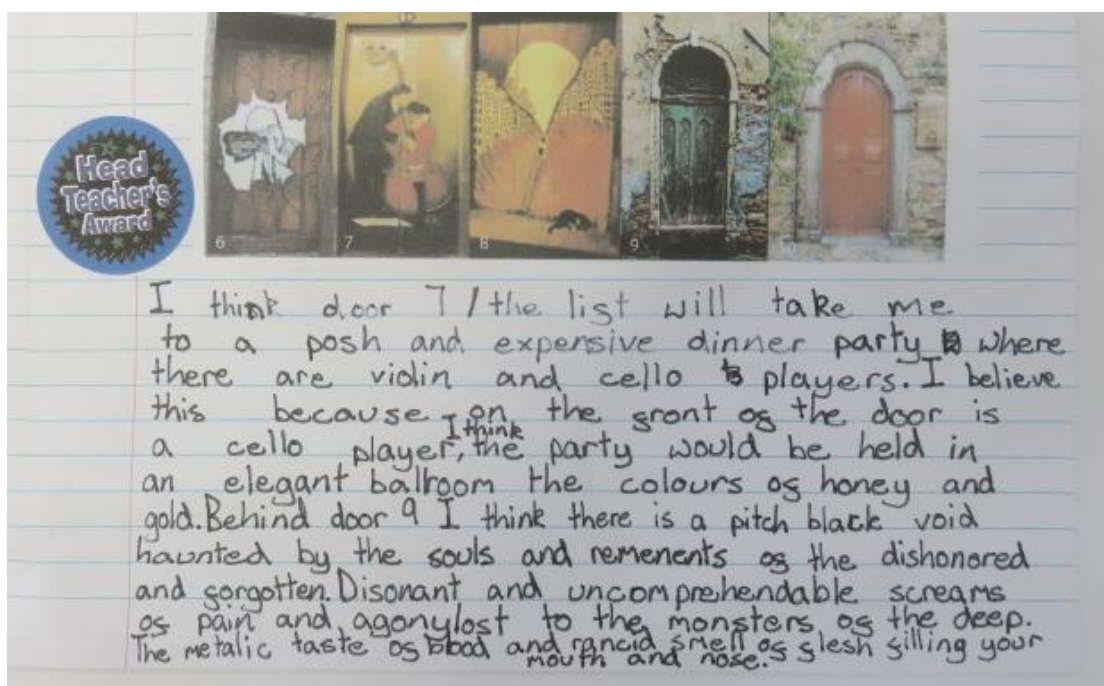 Head
Teacher's
Award
6 7 8 9 10
I think door 7 / the list will take me
to a posh and expensive dinner party where
there are violin and cello players. I believe
this because on the front of the door is
a cello player, I think the party would be held in
an elegant ballroom the colours of honey and
gold. Behind door 9 I think there is a pitch black void
haunted by the souls and remenents of the dishonored
and forgotten. Disonant and uncomprehendable screams
of pain and agony lost to the monsters of the deep.
The metalic taste of blood and rancid smell of flesh filling your
mouth and nose.